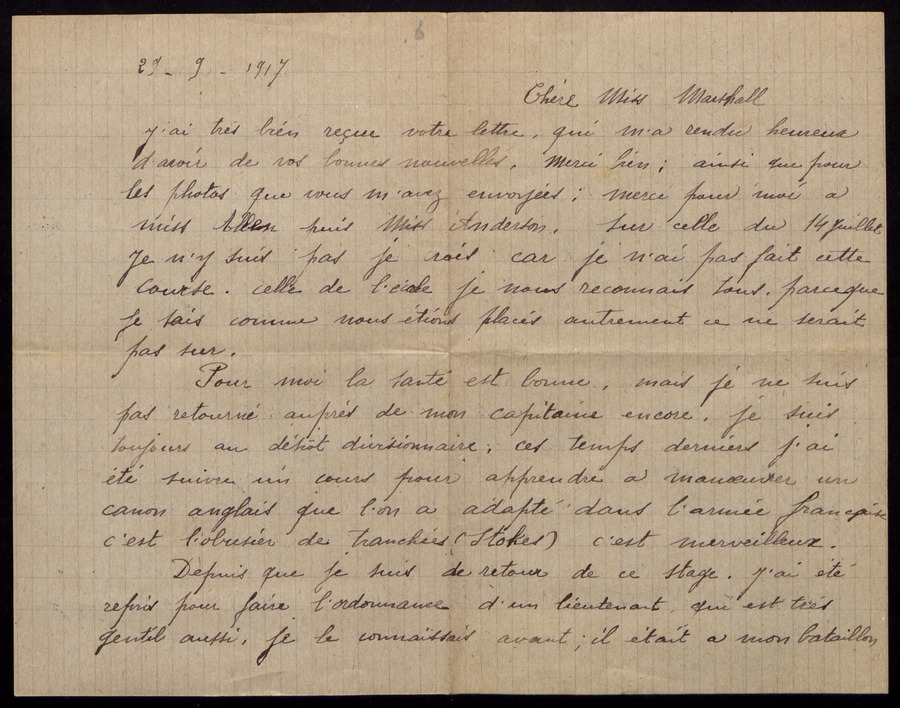 6
29 - 9 - 1917
Chére Miss Marshall
j'ai trés bién reçue votre lettre, qui m'a rendu heureux
d'avoir de vos bonnes nouvelles. Merci bien ; ainsi que pour
les photos que vous m'avez envoyées ; merci pour moi a
miss Allen puis Miss Anderson. sur celle du 14 Juillet
Je n'y suis pas je vois car je n'ai pas fait cette
course. celle de l'école je nous reconnais tous. parceque
Je sais comme nous étions placés autrement ce ne serait
pas sur.
Pour moi la santé est bonne, mais je ne suis
pas retourné auprés de mon capitaine encore. je suis
toujours au dépôt divisionnaire ; ces temps derniers j'ai
été suivre un cours pour apprendre a manœuvrer un
canon anglais que l'on a adapté dans l'armée française
c'est l'obusier de tranchées (Stokes) c'est merveilleux.
Depuis que je suis de retour de ce stage. j'ai été
repris pour faire l'ordonnance d'un lieutenant qui est trés
gentil aussi, je le connaissais avant ; il était a mon bataillon